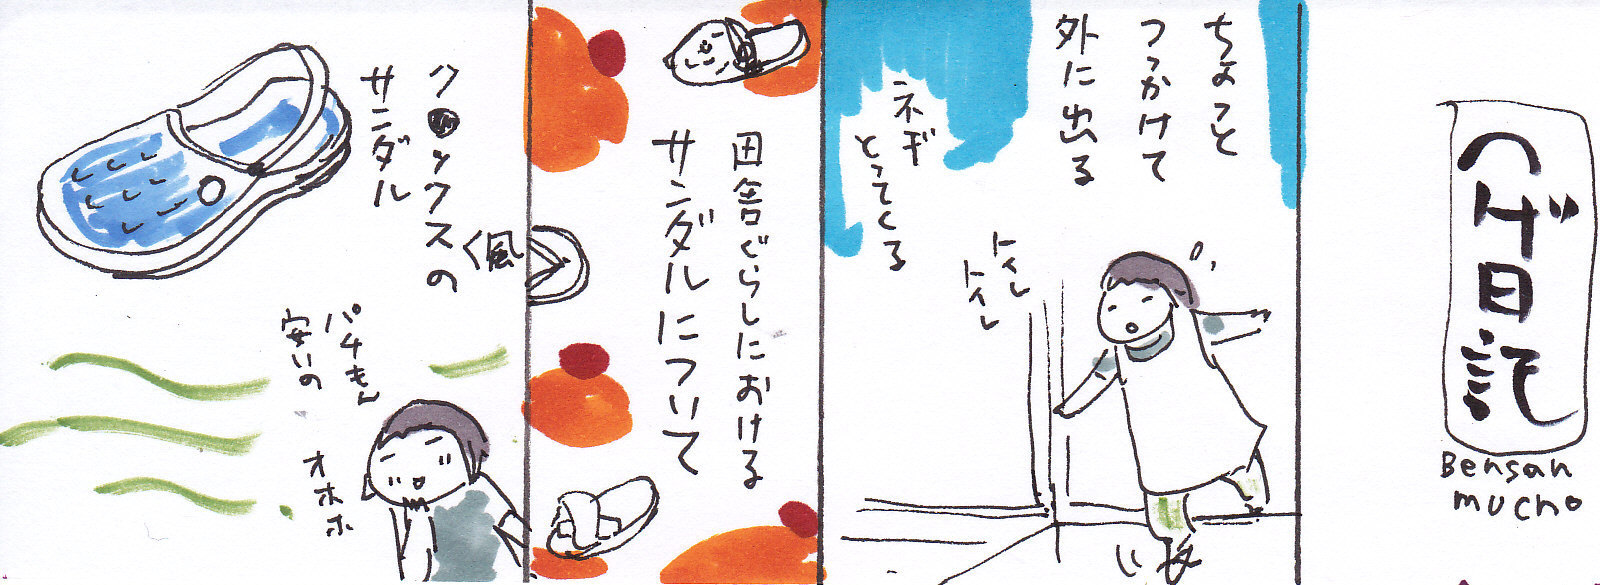 へげ日記
Bensan
mucho
ちょっと
つっかけて
外に出る
ネギ
とってくる
トイレ
トイレ
田舎ぐらしにおける
サンダルについて
ク●ックスの
サンダル
風
パチもん
安いの
オホホ